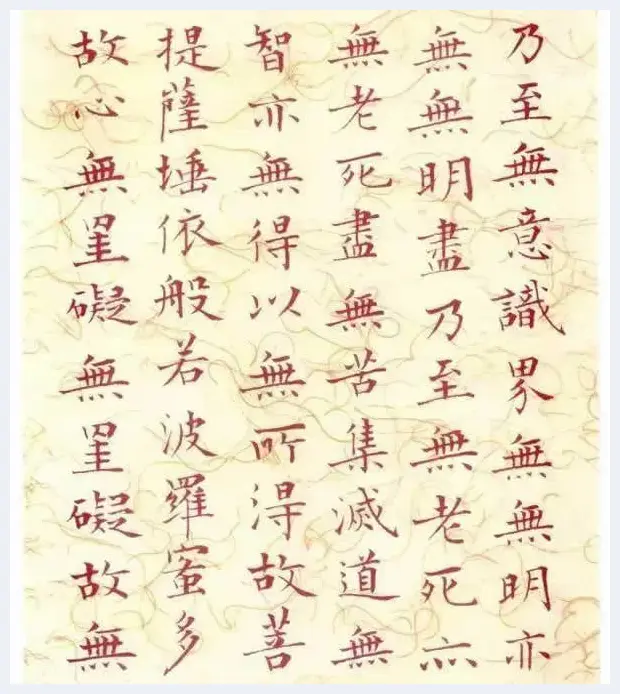 乃至無意識界無無明亦
無無明盡乃至無老死亦
無老死盡無苦集滅道無
智亦無得以無所得故菩
提薩埵依般若波羅蜜多
故心無罣礙無罣礙故無